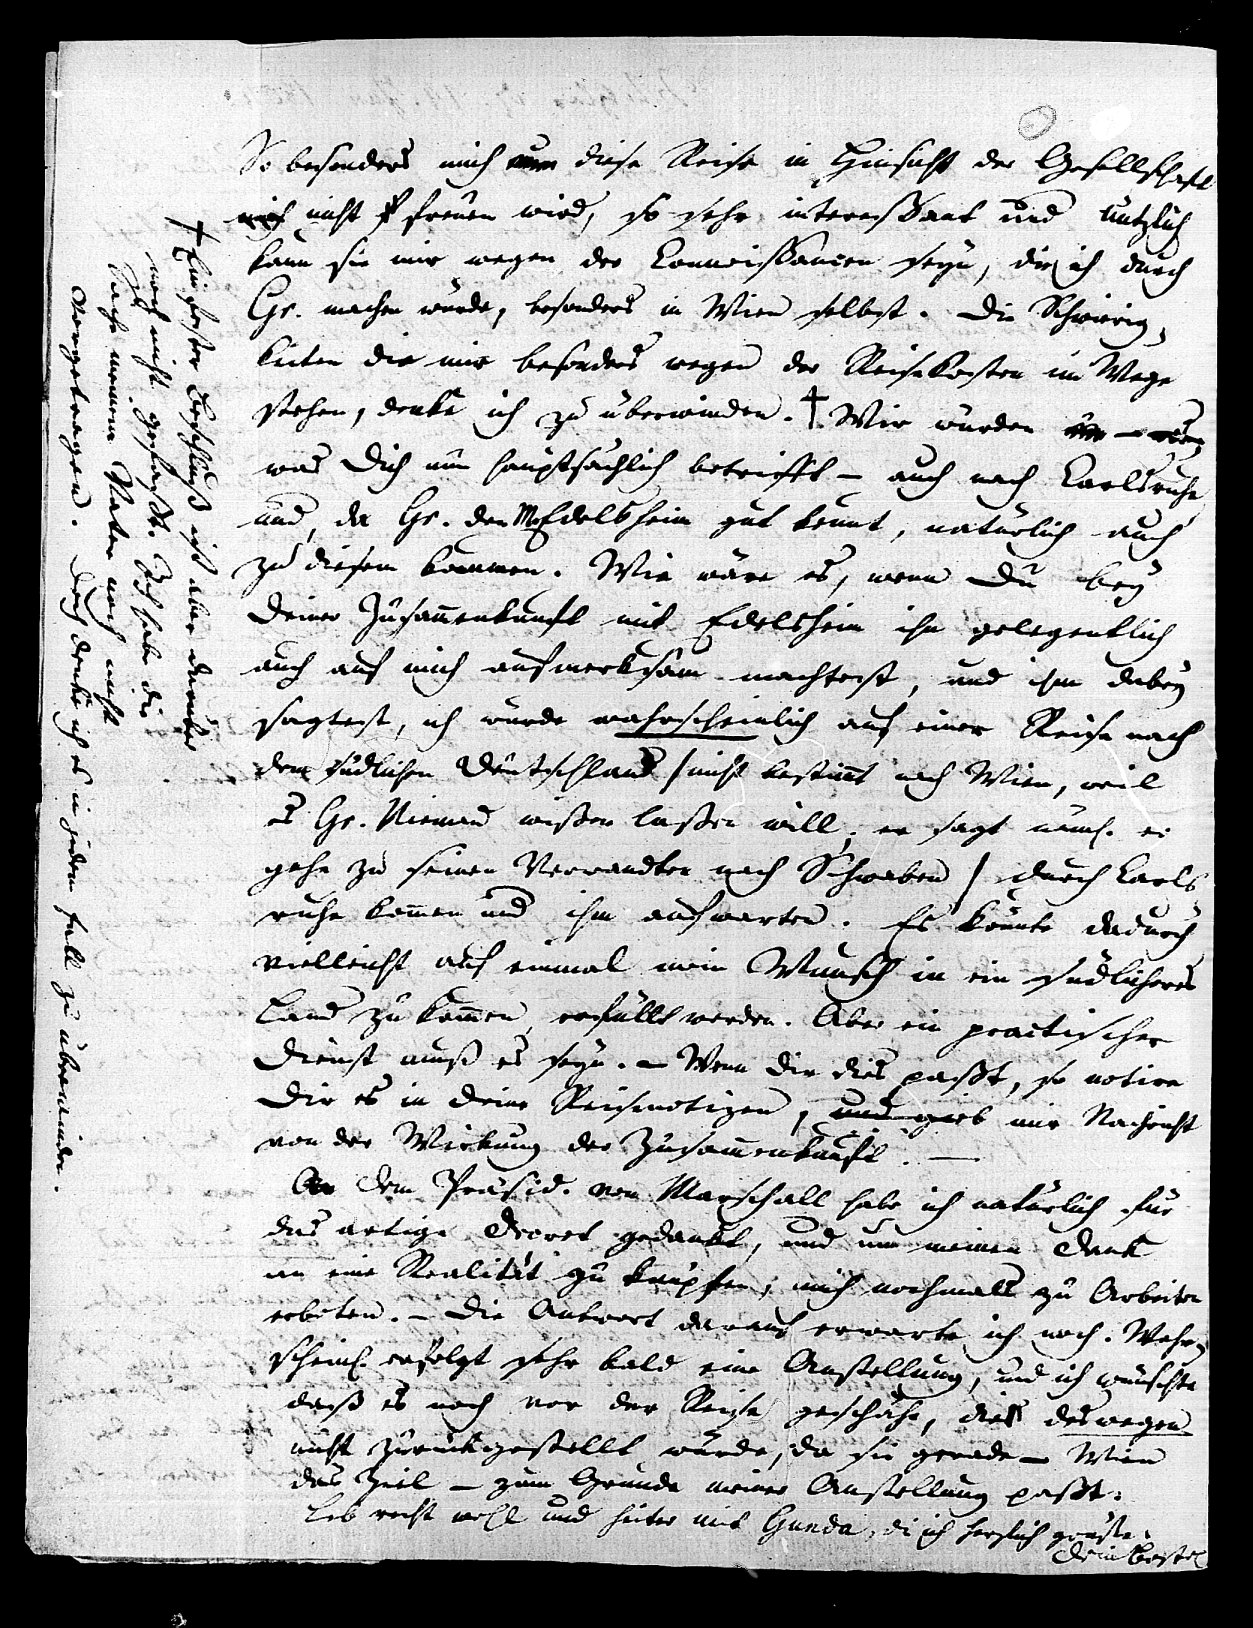 So besonders mich nun diese Reise in Hinsicht der Gesellschaft
mich nicht freuen wird, so sehr interessant und nützlich
kann sie mir wegen der Connoissancen seyn, die ich durch
Gr. machen würde, besonders in Wien selbst. Die Schwierig-
keiten die mir besonders wegen der Reisekosten im Wege
stehen, denke ich zu überwinden. † Wir würden –
was Dich nun hauptsächlich betrifft – auch nach Carlsruhe
und, da Gr. den M Edelsheim gut kennt, natürlich auch
zu diesem kommen. Wie wäre es, wenn Du bey
Deiner Zusam̅enkunft mit Edelsheim ihn gelegentlich
auch auf mich aufmerksam machtest, und ihm dabey
sagtest, ich würde wahrscheinlich auf einer Reise nach
dem südlichen Deutschland /nicht bestim̅t nach Wien, weil
es Gr. Niemand wißen laßen will; er sagt nämh. er
gehe zu seinen Verwandten nach Schwaben / durch Carls-
ruhe kom̅en und ihm aufwarten. Es könnte dadurch
vielleicht auf einmal mein Wunsch in ein südlicheres
Land zu kom̅en, erfüllt werden. Aber ein practischer
Dienst muß es seyn. – Wenn Dir dies paßt, so notire
Dir es in Deine Reisenotizen, und gieb mir Nachricht
von der Wirkung der Zusam̅enkunft. —
Dem Präsid. von Marschall habe ich natürlich für
das artige Decret gedankt, und um meinen Dank
an eine Realität zu knüpfen, mich nochmals zu Arbeiten
erboten. – Die Antwort darauf erwarte ich noch. Wahr-
scheinl. erfolgt sehr bald eine Anstellung, und ich wünschte
daß es noch vor der Reise geschähe, dies deswegen
nicht zurückgestellt würde, da sie gerade – Wien
das Ziel – zum Grunde meiner Anstellung paßt.
Leb recht wohl und heiter mit Gunda, die ich herzlich grüße.
Dein
† Ein fester Entschluß ist aber darüber
noch nicht gefaßt. Ich habe die
Sache meinem Vater noch nicht
vorgetragen. Doch denke ich es in jedem Fall zu überwinden.